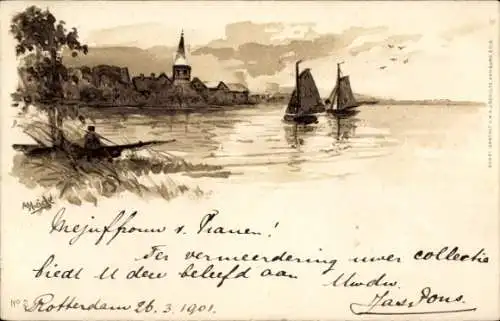 Mejufvrouw v. Pranen!
Ter vermeerdering uwer collectie
biedt U deze beleefd aan Uwdw.
Jas Pons.
No
Rotterdam 26.3.1901.